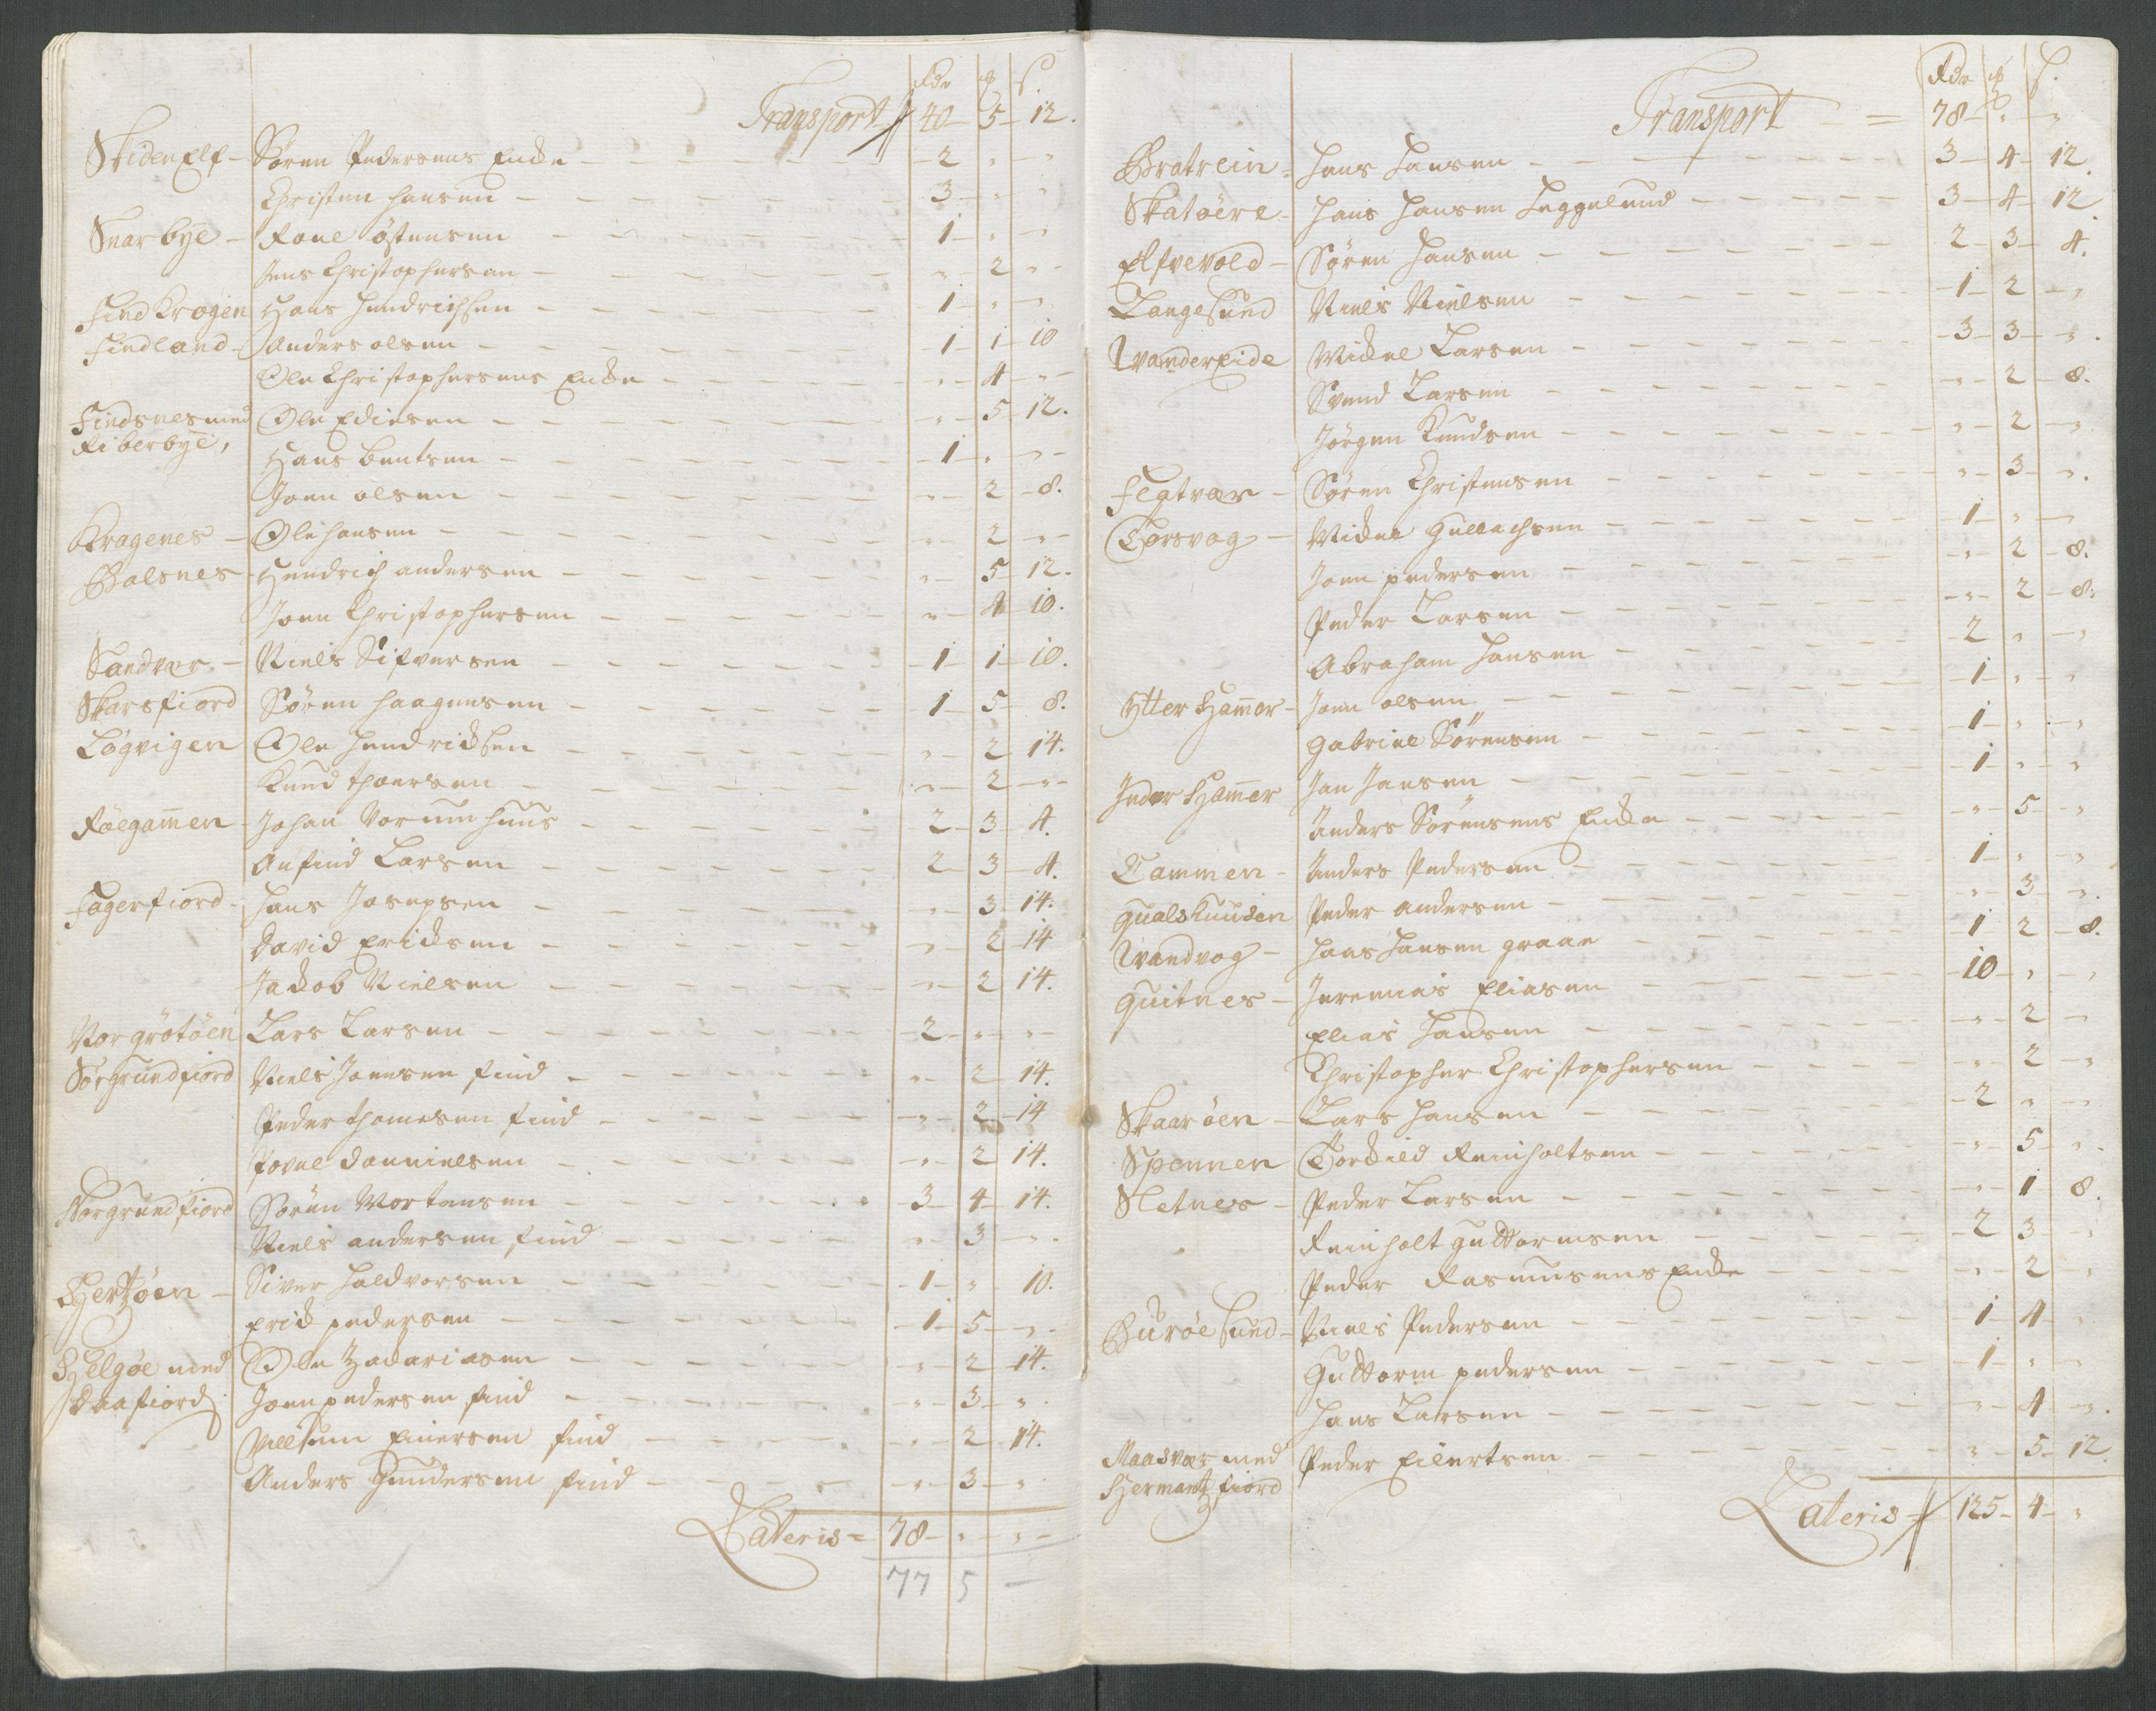 Rdr ȣ ß.
Transport 40 5 12.
Skidenelf - Søren Pedersens Encke 2 " "
Christen hansen 3 " "
Snarbye - Poul Østensen 1 " "
Jens Christophersen " 2 "
Findkrogen Hans Hendrichsen 1 " "
Findland - Anders olsen 1 1 10
Ole Christophersens Encke " 4 "
Findsnes med Ole Edissen " 5 12.
Riberbye,
Hans bentsen 1 " "
Joen olsen " 2 8.
Kragenes - Ole hansen " 2 "
Balsnes - Hendrich andersen " 5 12.
Joen Christophersen " 4 10.
Sandvær - Niels Sifversen 1 1 10.
Skarsfiord Søren haagensen 1 5 8.
Løgvigen Ole Hendricksen " 2 14.
Knud thoersen " 2 "
Røegam̄en - Johan Vorumhuus 2 3 4.
Anfind Larsen 2 3 4.
Fagerfiord - Hans Josepsen " 3 14.
David Ericksen " 2 14
Jackob Nielsen " 2 14.
Nor grøtøen Lars Larsen 2 " "
Sørgrundfiord Niels Joensen find " 2 14.
Peder thomesen find " 2 14
Povel Danielsen " 2 14.
Norgrundfiord Søren Mortensen 3 4 14.
Niels andersen find " 3 "
Hertzøen - Siver Haldvorsen 1 " 10.
Erick pedersen 1 5 "
Helgøe med Ole Zackariasen " 2 14.
Skaafiord Joen pedersen find " 3 "
Villum Einersen find " 2 14.
Anders Gundersen find " 3 "
Lateris = 78 " "
77 5 -
Rdr ȣ ß.
Transport = 78 " "
Bratrein - Hans Hansen 3 4 12.
Skatøere - Hans Hansen Heggelund 3 4 12
Elfvevold - Søren Hansen 2 3 4.
Langesund Niels Nielsen 1 2 "
Wandereide Mickel Larsen 3 3 "
Svend Larsen " 2 8.
Jørgen Knudsen " 2 "
Flatvær - Søren Christensen " 3 "
Torsvog - Mickel Gullachsen 1 " "
Joen pedersen " 2 8.
Peder Larsen " 2 8.
Abraham Hansen 2 " "
Ytter Ham̄er - Joen olsen 1 " "
Gabriel Sørensen 1 " "
Inder Ham̄er Jan Jansen 1 " "
Anders Sørensens Encke " 5 "
Tammen - Anders Pedersen 1 " "
Gualsknuden Peder andersen " 3 "
Wandvog - Hans Hansen graae 1 2 8.
Guitnes - Jeremias Eliasen 10 " "
Elias Hansen " 2 "
Christopher Christophersen " 2 "
Skaarøen - Lars Hansen 2 " "
Spennen Torckild Reinholtsen " 5 "
Sletnes - Peder Larsen " 1 8.
Reinholt Guttormsen 2 3 "
Peder Rasmusens Encke " 2 "
Burøesund - Niels Pedersen 1 4 "
Guttorm pedersen 1 " "
Hans Larsen " 4 "
Maasvær med Peder Eilertsen " 5 12
Hermantzfiord
Lateris 125 4 "